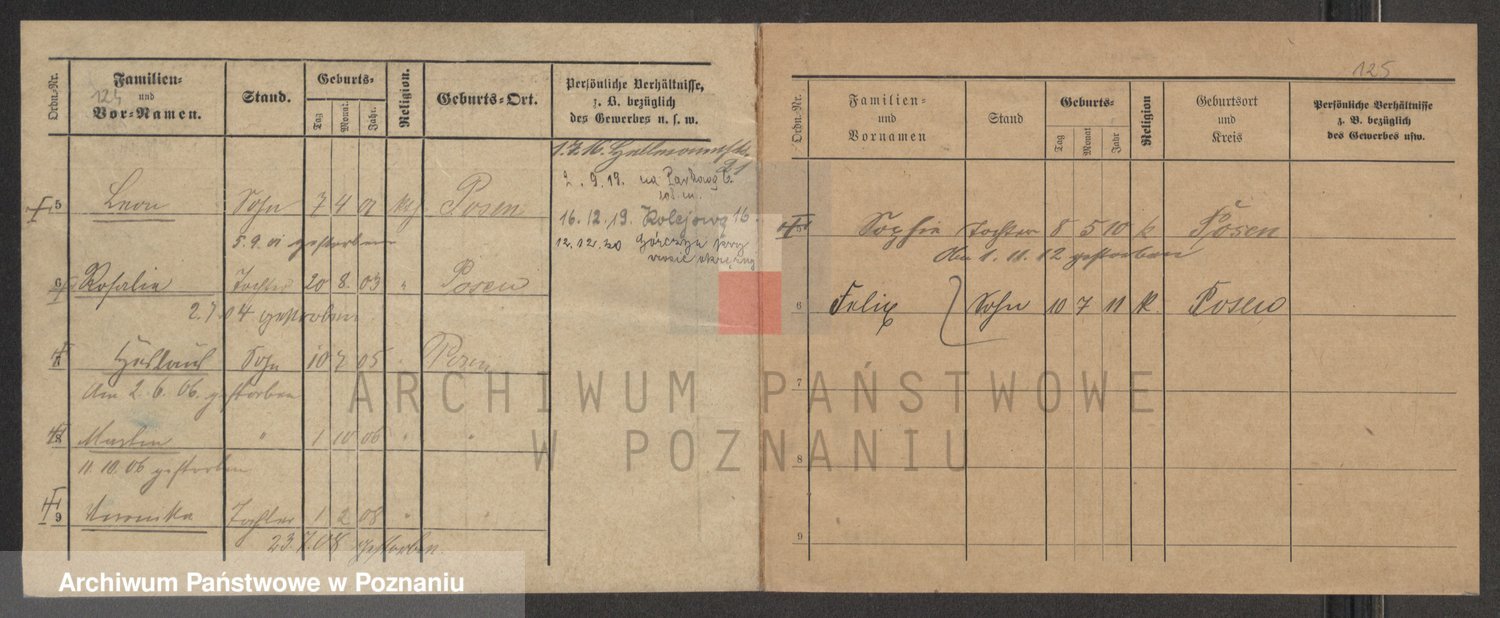 Ordn.-Nr. Familien- und Vor-Namen. Stand. Geburts- Tag Monat. Jahr. Religion. Geburts-Ort. Persönliche Verhältnisse, z. B. bezüglich des Gewerbes u. s. w.
124
1.7.16. 21
2.9.19. na Parkową
5 Leon Sohn 7 4 01 Posen
16.12.19. Kolejowa 16
5.9.01 gestorben
12.12.20 Górczyn
6 Rosalie Tochter 20 8. 03 " Posen
2.7.04 gestorben
7 Sohn 10 7 05 Posen
Am 2.6.06. gestorben
8 Martin " 1 10 06 " "
11.10.06 gestorben
9 Veronika Tochter 1 2 08 " "
23.7.08 gestorben.
125
Ordn.-Nr. Familien- und Vornamen Stand Geburts- Tag Monat Jahr Religion Geburtsort und Kreis Persönliche Verhältnisse z. B. bezüglich des Gewerbes usw.
5 Sophie Tochter 8 5 10 k Posen
Am 1.11.12 gestorben
6 Felix Sohn 10 7 11 k. Posen
7
8
9
ARCHIWUM PAŃSTWOWE
W POZNANIU
Archiwum Państwowe w Poznaniu